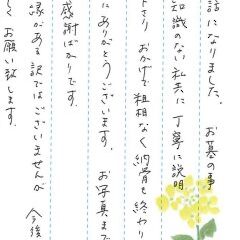 話になりました。 お墓の事
知識のない私共に丁寧に説明
下さり おかげで粗相なく納骨も終わり
にありがとうございます。 お写真まで
感謝ばかりです。
縁がある訳ではございませんが 今後
くお願い致します。